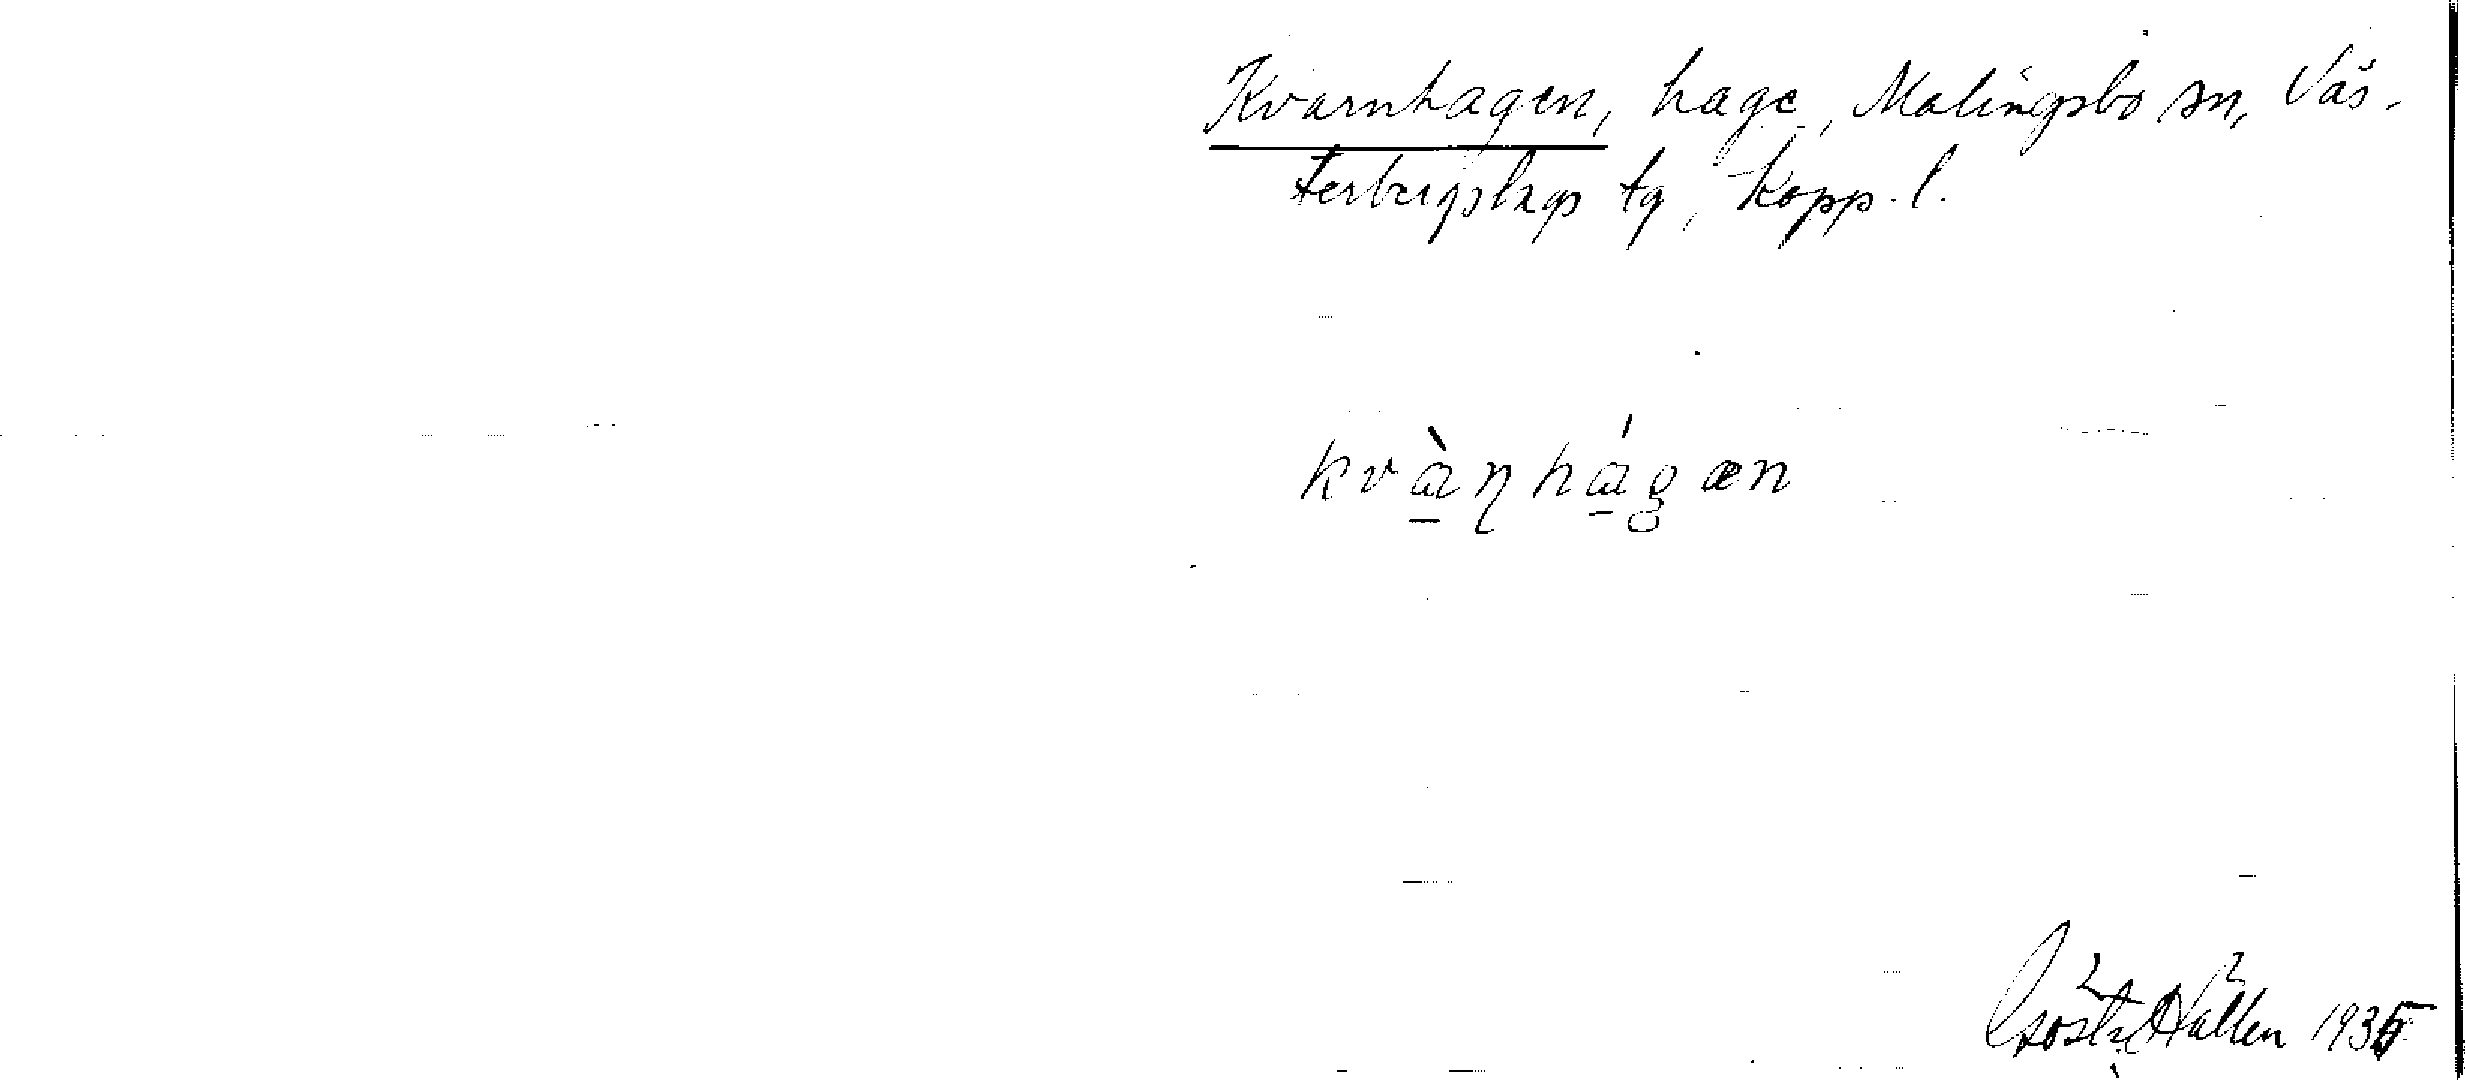 Kvarnhagen, hage, Malingsbo sn, Väs-
terbergslags tg, Kopp. l.
kvɑ̱̀ɳhɑ̱́gæn
Gösta Hallén 1935